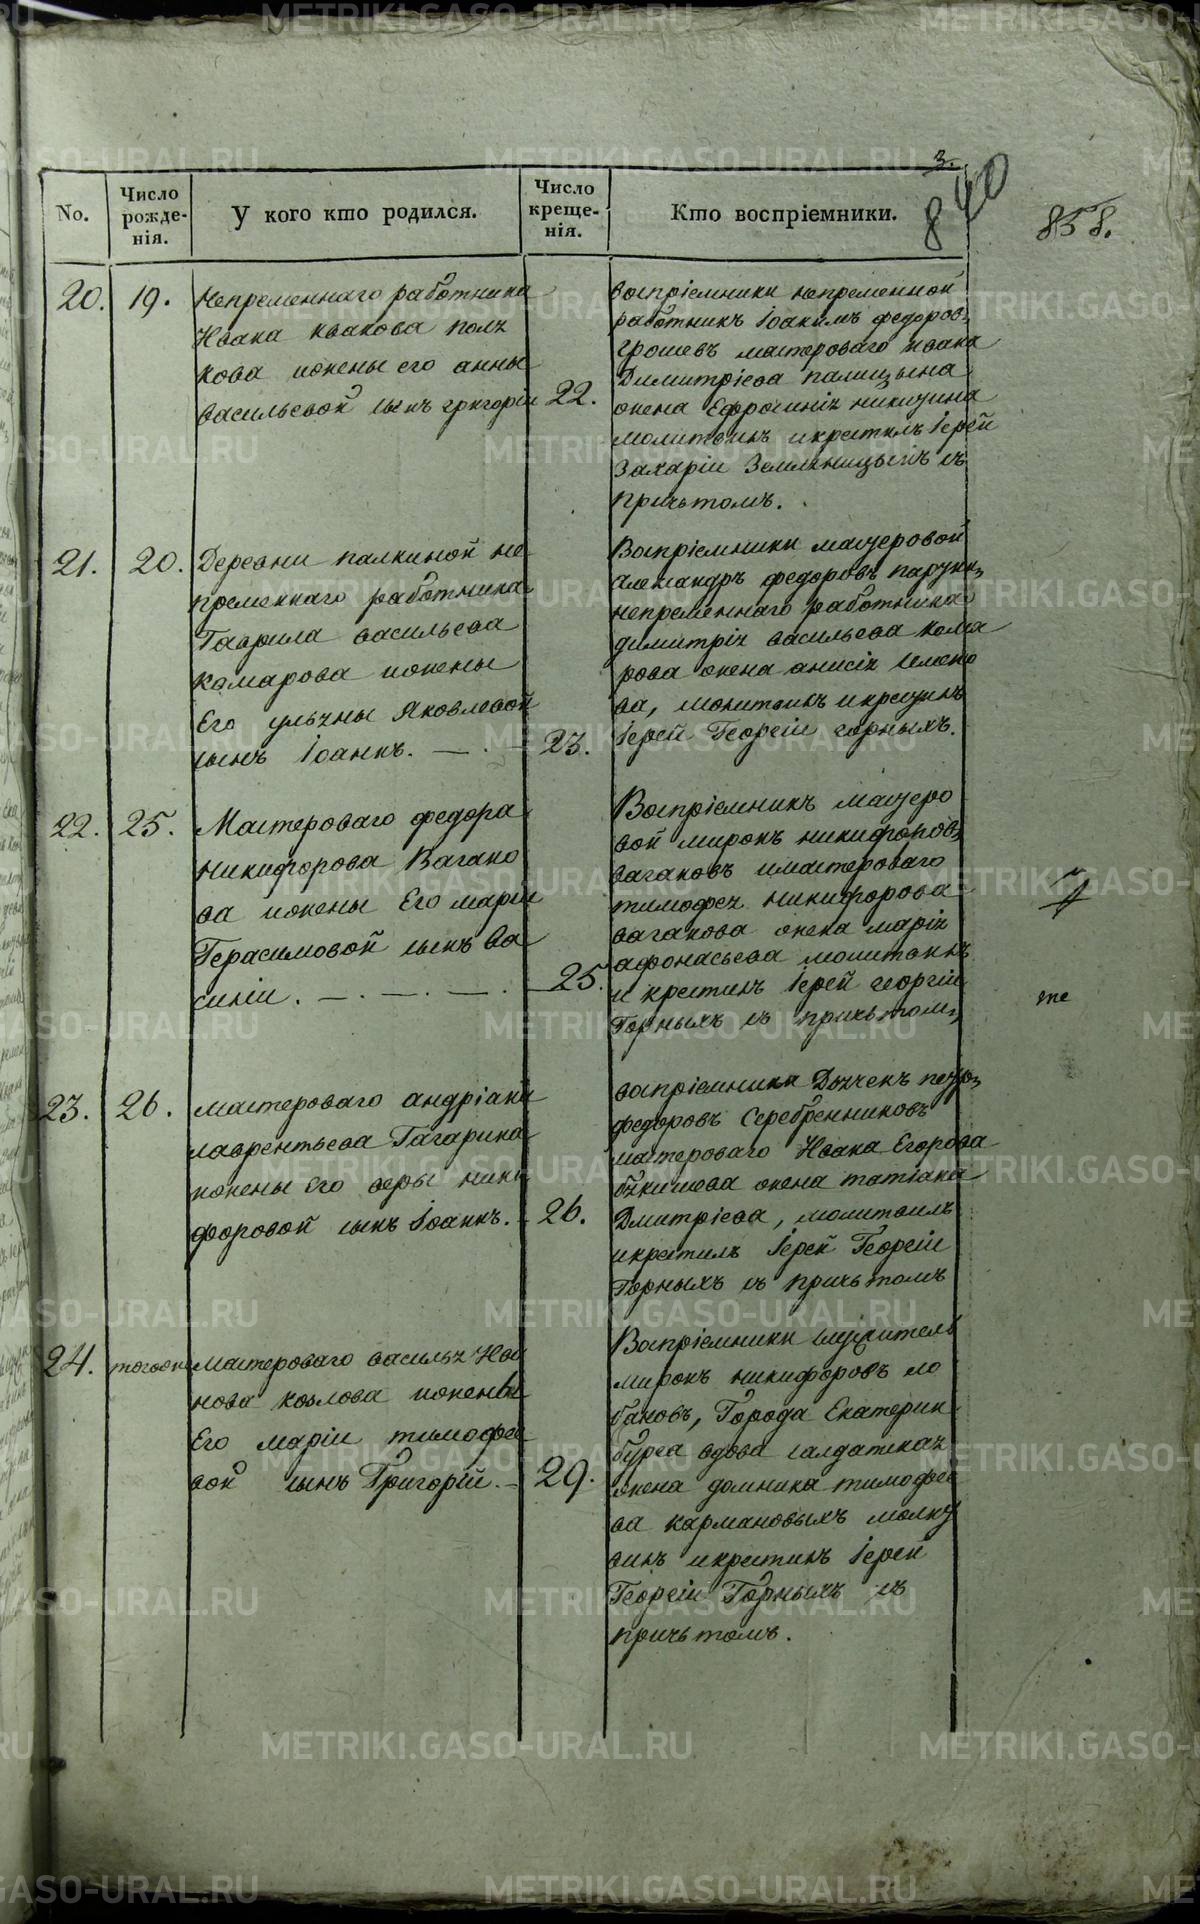 3.
840
858.
No.
Число рожденія.
У кого кто родился.
Число крещенія.
Кто воспріемники.
20.
19.
Непременнаго работника
Ивана Иванова полз
кова ижены его анны
васильевой сынъ григорій
22.
воспріемники непременной
работникъ Іоакимъ федоровъ
грошевъ мастероваго ивана
Димитріева палицына
жена Ефросинія никитина
молитвилъ икрестилъ Іерей
Захаріи Земляницынъ съ
причьтомъ.
21.
20.
Деревни палкиной не
пременнаго работника
Гаврила васильева
комарова ижены
Его ульяны Яковлевой
сынъ Іоаннъ.
23.
Воспріемники мастеровой
Александръ федоровъ
непременнаго работника
димитрія васильева кома
рова жена анисія семено
ва, молитвилъ икрестилъ
Іерей Георгіи горныхъ.
22.
25.
Мастероваго федора
никифорова Вагано
ва ижены Его маріи
Герасимовой сынъ Ва
силіи.
25.
Воспріемникъ мастеро
вой миронъ никифоровъ
вагановъ имастероваго
тимофея никифорова
ваганова жена марія
афонасьева молитвилъ
и крестилъ Іерей георгіи
Горныхъ съ причьтомъ
те
23.
26.
мастероваго андріана
лаврентьева Гагарина
ижены его веры ники
форовой сынъ Іоаннъ.
26.
воспріемники Дьячекъ петръ
федоровъ Серебренниковъ
мастероваго Ивана Егорова
жена татіана
Дмитріева, молитвилъ
икрестилъ Іерей Георгіи
Горныхъ съ причьтомъ
24.
тогожъ
мастероваго василья Ива
нова козлова ижены
Его маріи тимофее
вой сынъ Григорій.
29.
Воспріемники служитель
миронъ никифоровъ ло
бановъ, Города Екатерин
бурга вдова салдатская
жена домника тимофее
ва кармановыхъ молит
вилъ икрестилъ Іерей
Георгіи Горныхъ съ
причьтомъ.
METRIKI.GASO-URAL.RU